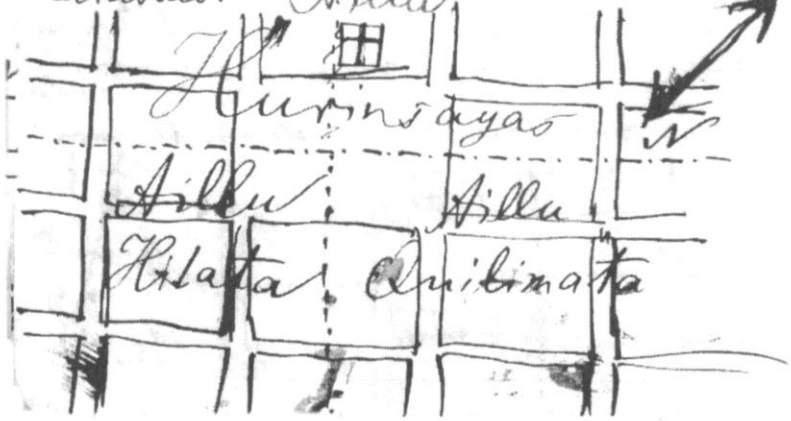 Aillu
Hurinsayas
N
Aillu Aillu
Hilata Quilimata